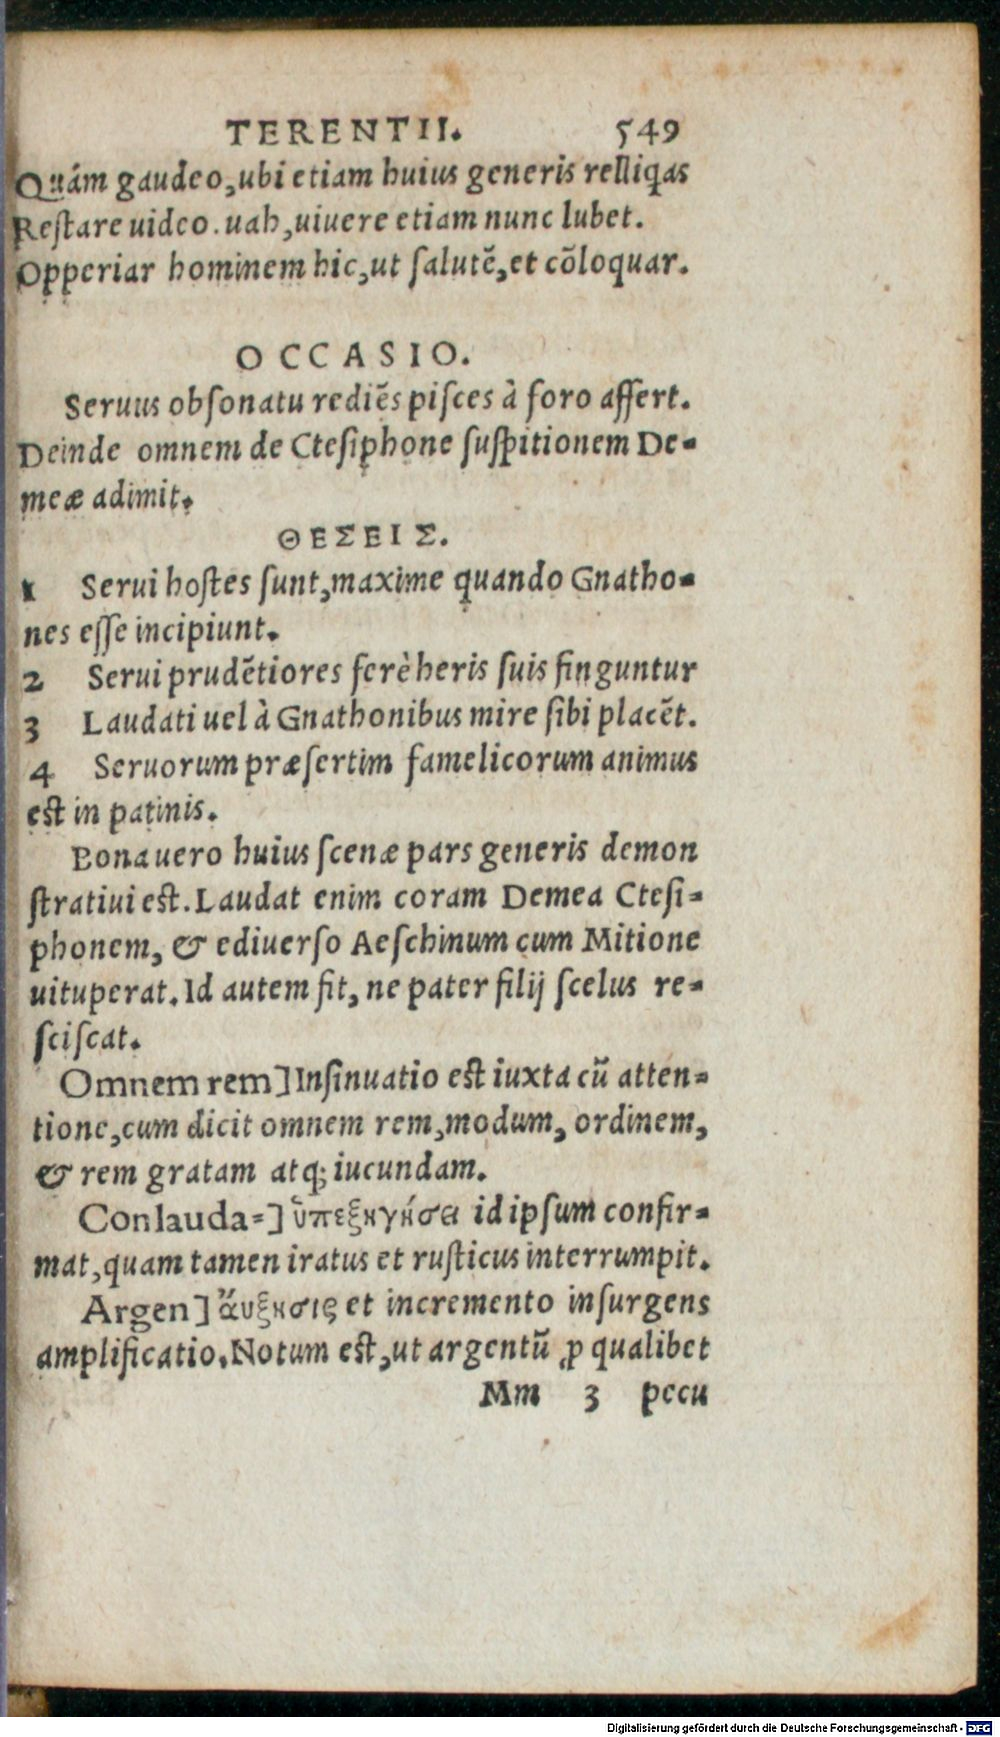 TERENTII. 549
Quám gaudeo, ubi etiam huius generis relliqas
Restare uideo. uah, uiuere etiam nunc lubet.
Opperiar hominem hic, ut salutē, et cōloquar.
OCCASIO.
Seruus obsonatu rediēs pisces à foro affert.
Deinde omnem de Ctesiphone suspitionem De-
meæ adimit.
ΘΕΣΕΙΣ.
1 Serui hostes sunt, maxime quando Gnatho-
nes esse incipiunt.
2 Serui prudētiores ferè heris suis finguntur
3 Laudati uel à Gnathonibus mire sibi placēt.
4 Seruorum præsertim famelicorum animus
est in patinis.
Bona uero huius scenæ pars generis demon
stratiui est. Laudat enim coram Demea Ctesi-
phonem, & ediuerso Aeschinum cum Mitione
uituperat. Id autem fit, ne pater filij scelus re-
sciscat.
Omnem rem] Insinuatio est iuxta cū atten-
tione, cum dicit omnem rem, modum, ordinem,
& rem gratam atq; iucundam.
Conlauda-] ὑπεξηγήσει id ipsum confir-
mat, quam tamen iratus et rusticus interrumpit.
Argen] ἄυξησις et incremento insurgens
amplificatio. Notum est, ut argentū ꝓ qualibet
Mm 3 pecu
Digitalisierung gefördert durch die Deutsche Forschungsgemeinschaft - DFG